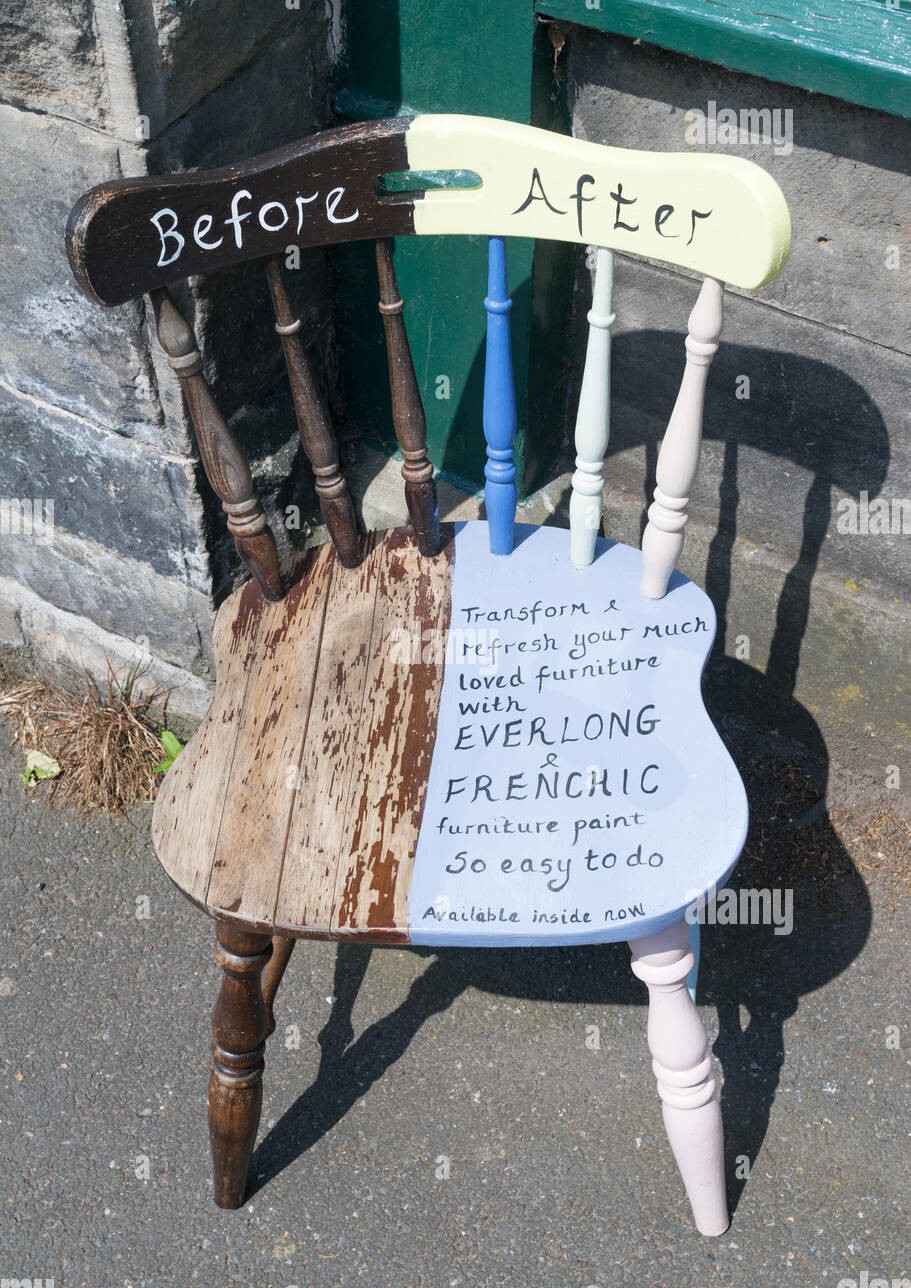 Before After
Transform &
refresh your much
loved furniture
with
EVERLONG
&
FRENCHIC
furniture paint
So easy to do
Available inside now
alamy